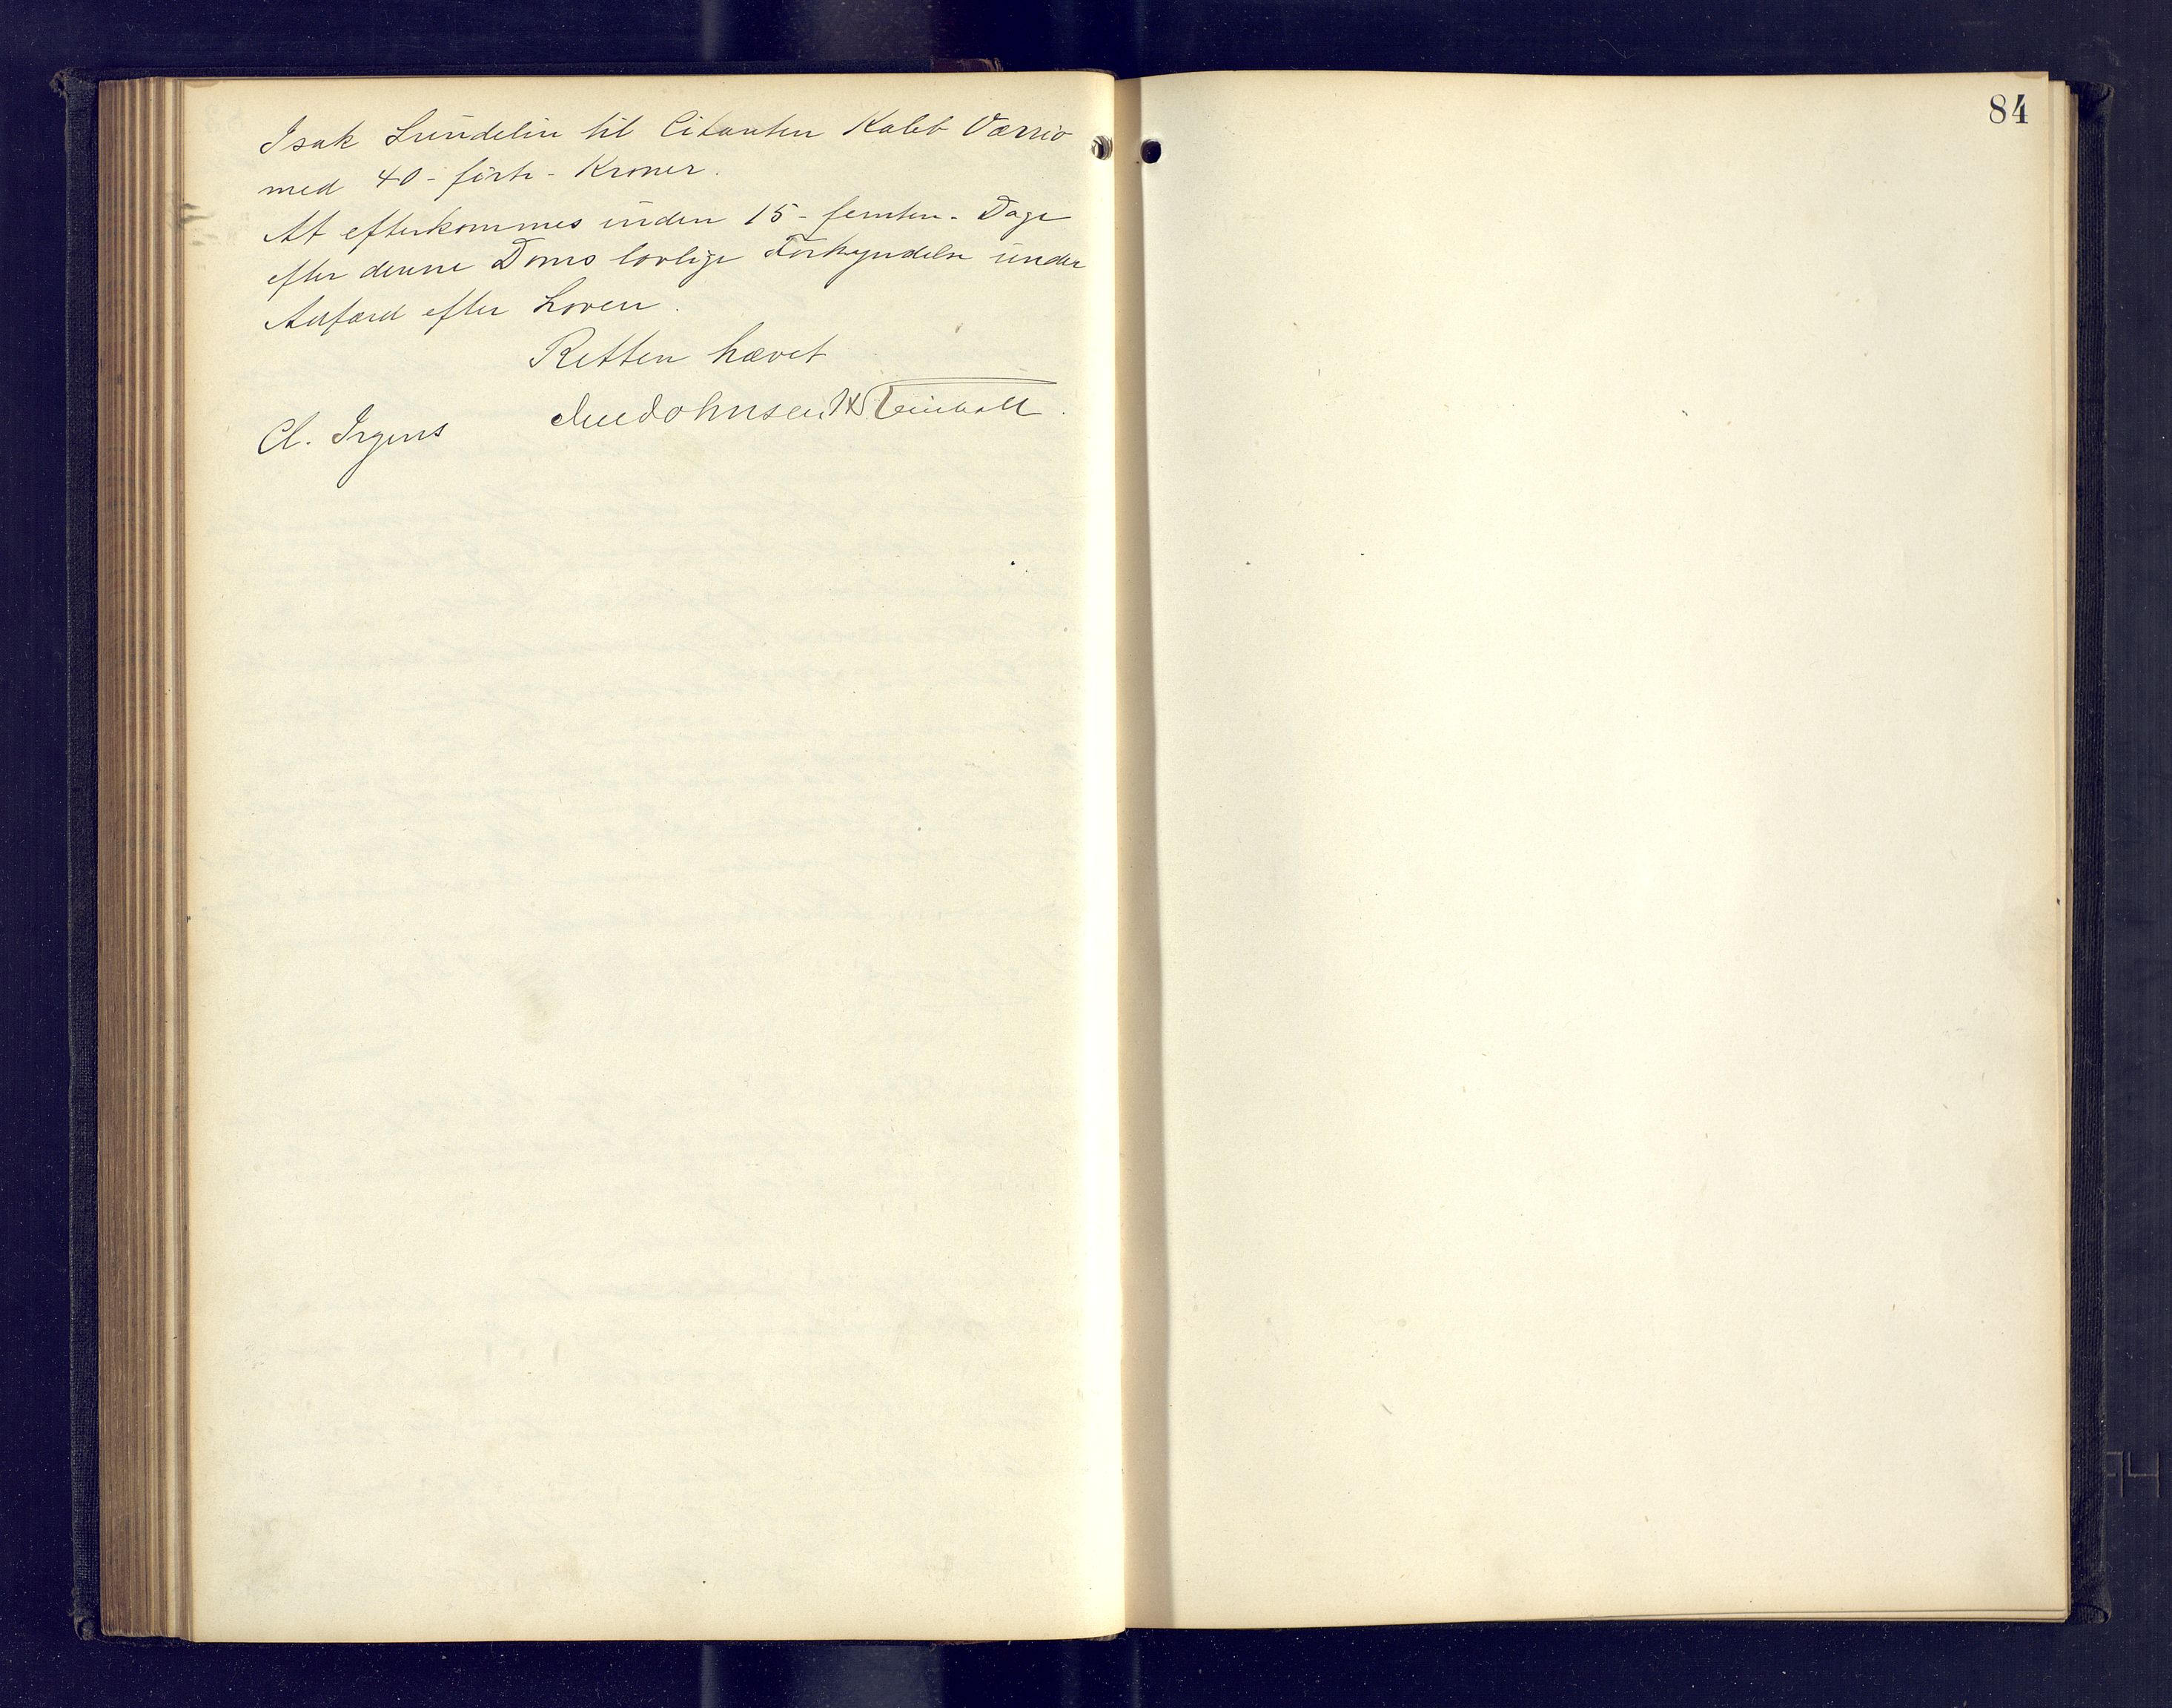 Isak Lundelin til Citanten Kaleb Værrio
med 40 - førti - Kroner.
At efterkommes inden 15 - femten - Dage
efter denne Doms lovlige Forkyndelse under
Adfærd efter Loven.
Retten hævet
Cl. Irgens
84